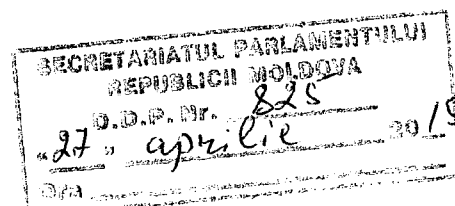 SECRETARIATUL PARLAMENTULUI
REPUBLICII MOLDOVA
D.D.P. Nr. 825
"27" aprilie 2015
Ora